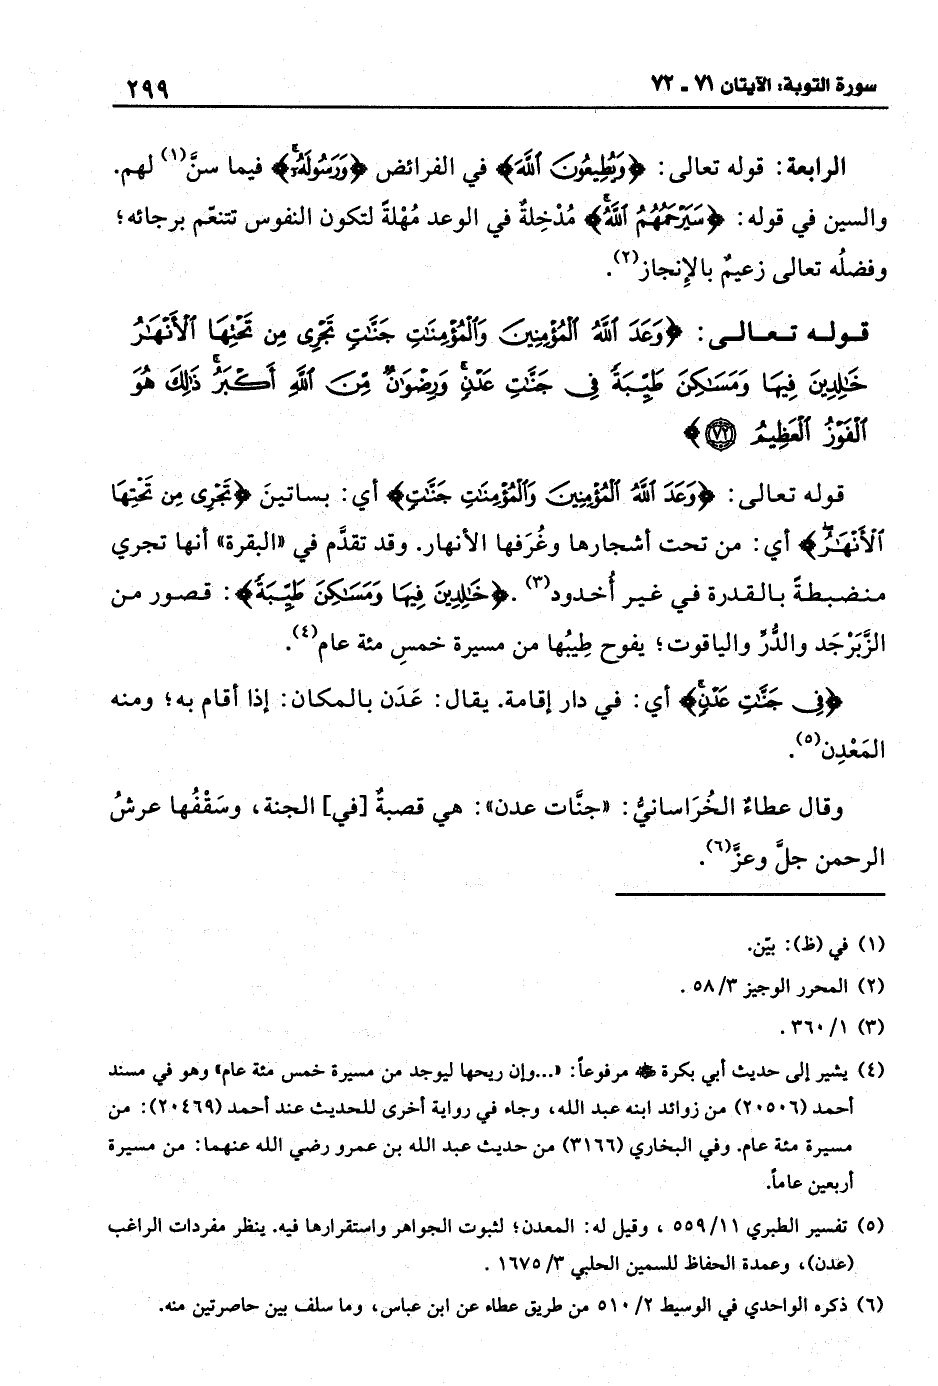 سورة التوبة: الآيتان ٧١ - ٧٢
٢٩٩
الرابعة: قوله تعالى: ﴿وَيُطِيعُونَ ٱللَّهَ﴾ في الفرائض ﴿وَرَسُولَهُۥٓۚ﴾ فيما سنَّ(١) لهم.
والسين في قوله: ﴿سَيَرْحَمُهُمُ ٱللَّهُۗ﴾ مُدْخِلةٌ في الوعد مُهْلةً لتكون النفوس تتنعّم برجائه؛
وفضلُه تعالى زعيمٌ بالإنجاز(٢).
قوله تعالى: ﴿وَعَدَ ٱللَّهُ ٱلْمُؤْمِنِينَ وَٱلْمُؤْمِنَٰتِ جَنَّٰتٍ تَجْرِى مِن تَحْتِهَا ٱلْأَنْهَٰرُ
خَٰلِدِينَ فِيهَا وَمَسَٰكِنَ طَيِّبَةً فِى جَنَّٰتِ عَدْنٍۚ وَرِضْوَٰنٌ مِّنَ ٱللَّهِ أَكْبَرُۚ ذَٰلِكَ هُوَ
ٱلْفَوْزُ ٱلْعَظِيمُ ٧٢﴾
قوله تعالى: ﴿وَعَدَ ٱللَّهُ ٱلْمُؤْمِنِينَ وَٱلْمُؤْمِنَٰتِ جَنَّٰتٍ﴾ أي: بساتينَ ﴿تَجْرِى مِن تَحْتِهَا
ٱلْأَنْهَٰرُ﴾ أي: من تحت أشجارها وغُرَفها الأنهار. وقد تقدَّم في «البقرة» أنها تجري
منضبطةً بالقدرة في غير أُخدود(٣). ﴿خَٰلِدِينَ فِيهَا وَمَسَٰكِنَ طَيِّبَةً﴾: قصور من
الزَّبَرْجَد والدُّرِّ والياقوت؛ يفوح طِيبُها من مسيرة خمسِ مئة عام(٤).
﴿فِى جَنَّٰتِ عَدْنٍۚ﴾ أي: في دار إقامة. يقال: عَدَن بالمكان: إذا أقام به؛ ومنه
المَعْدِن(٥).
وقال عطاءٌ الخُرَاسانيُّ: «جنَّات عدن»: هي قصبةٌ [في] الجنة، وسَقْفُها عرشُ
الرحمن جلَّ وعزَّ(٦).
(١) في (ظ): بيّن.
(٢) المحرر الوجيز ٣/ ٥٨ .
(٣) ١/ ٣٦٠ .
(٤) يشير إلى حديث أبي بكرة ﷺ مرفوعاً: «...وإن ريحها ليوجد من مسيرة خمس مئة عام» وهو في مسند
أحمد (٢٠٥٠٦) من زوائد ابنه عبد الله، وجاء في رواية أخرى للحديث عند أحمد (٢٠٤٦٩): من
مسيرة مئة عام. وفي البخاري (٣١٦٦) من حديث عبد الله بن عمرو رضي الله عنهما: من مسيرة
أربعين عاماً.
(٥) تفسير الطبري ١١/ ٥٥٩ ، وقيل له: المعدن؛ لثبوت الجواهر واستقرارها فيه. ينظر مفردات الراغب
(عدن)، وعمدة الحفاظ للسمين الحلبي ٣/ ١٦٧٥ .
(٦) ذكره الواحدي في الوسيط ٢/ ٥١٠ من طريق عطاء عن ابن عباس، وما سلف بين حاصرتين منه.